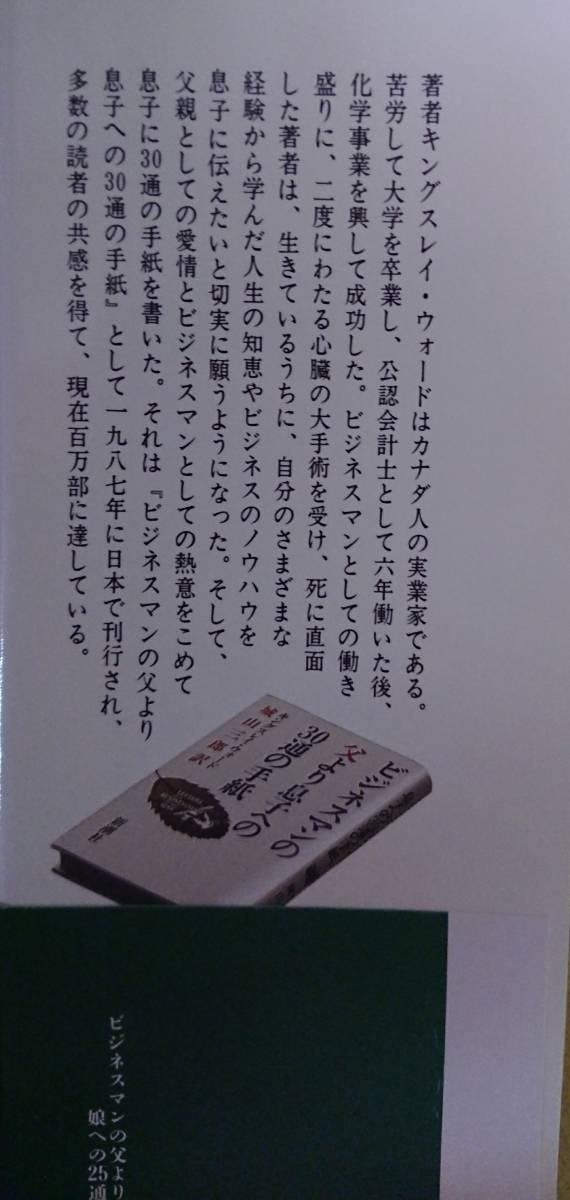 著者キングスレイ・ウォードはカナダ人の実業家である。
苦労して大学を卒業し、公認会計士として六年働いた後、
化学事業を興して成功した。ビジネスマンとしての働き
盛りに、二度にわたる心臓の大手術を受け、死に直面
した著者は、生きているうちに、自分のさまざまな
経験から学んだ人生の知恵やビジネスのノウハウを
息子に伝えたいと切実に願うようになった。そして、
父親としての愛情とビジネスマンとしての熱意をこめて
息子に30通の手紙を書いた。それは『ビジネスマンの父より
息子への30通の手紙』として一九八七年に日本で刊行され、
多数の読者の共感を得て、現在百万部に達している。
ビジネスマンの
父より息子への
30通の手紙
キングスレイ・ウォード
城山三郎 訳
新潮社
ビジネスマンの父より
娘への25通